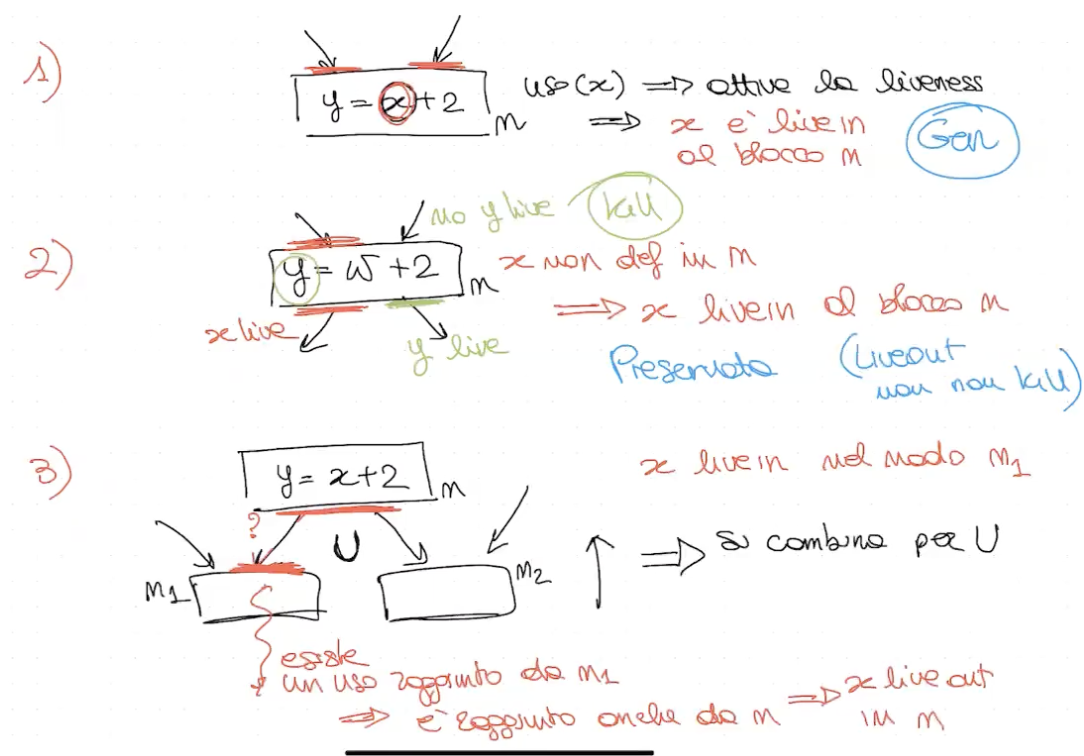 1)
y = x + 2
m
uso(x) ⇒ attiva la liveness
⇒ x è livein
al blocco m
Gen
2)
no y live
Kill
y = w + 2
m
x non def in m
⇒ x livein al blocco m
x live
y live
Preservata
(Liveout
non kill)
3)
y = x + 2
m
x livein nel nodo m1
?
U
⇒ si combina per U
m1
m2
esiste
un uso raggiunto da m1
⇒ è raggiunto anche da m
⇒ x live out
in m